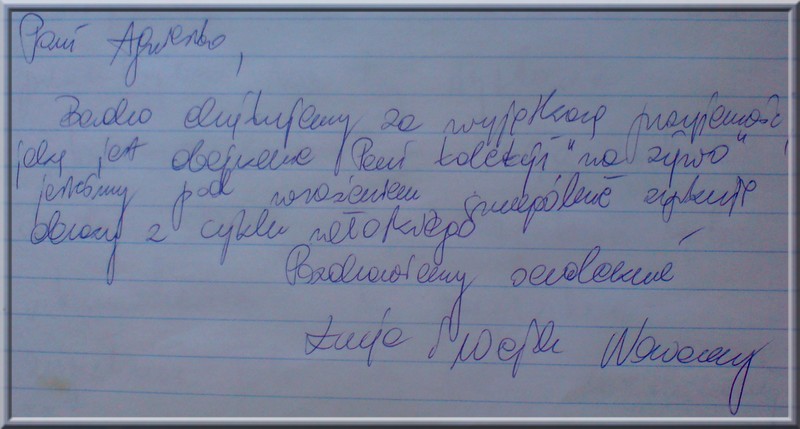 Pani Agnieszko,
Bardzo dziękujemy za wyjątkową przyjemność,
jaką jest obejrzenie Pani kolekcji "na żywo"
jesteśmy pod wrażeniem szczególnie
obrazy z cyklu
Pozdrawiamy serdecznie